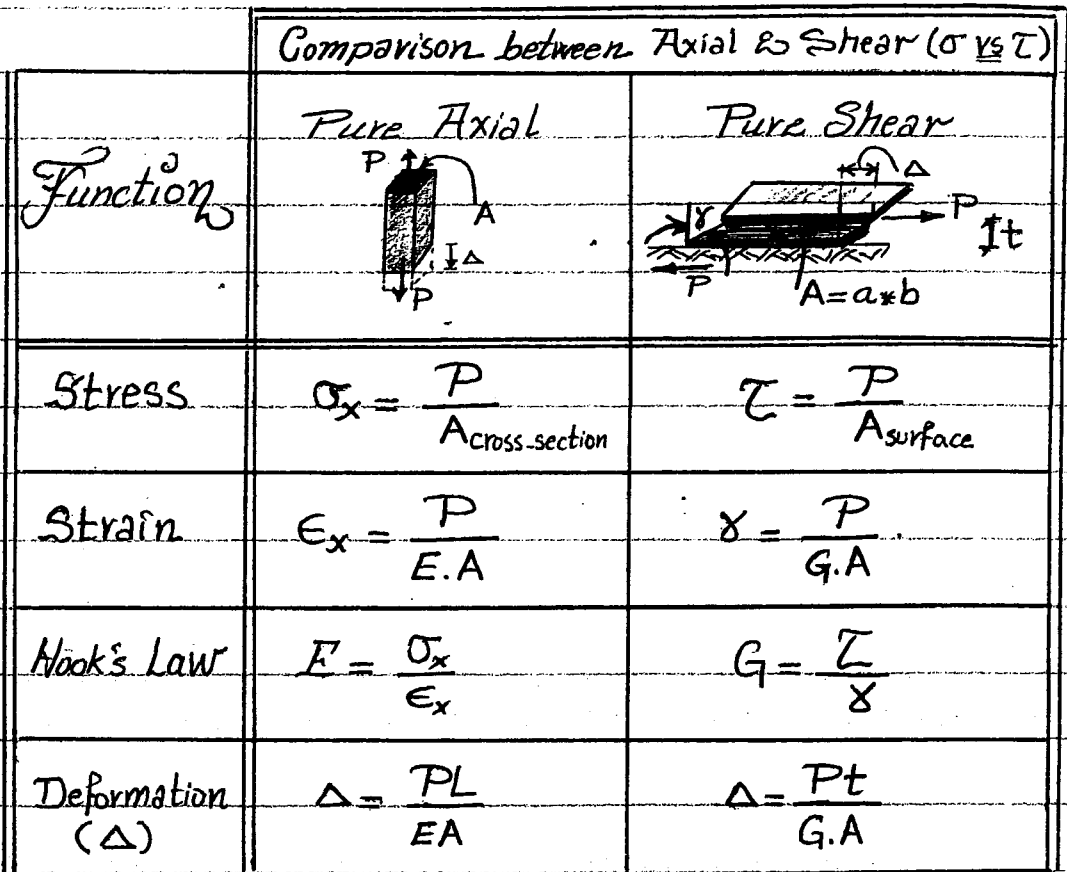 Comparison between Axial & Shear (σ vs τ)
Function
Pure Axial
P
A
Δ
P
Pure Shear
Δ
γ
P
t
P
A=a*b
Stress
σx = P / A cross-section
τ = P / A surface
Strain
ϵx = P / E.A
γ = P / G.A
Hook's Law
E = σx / ϵx
G = τ / γ
Deformation
(Δ)
Δ = PL / EA
Δ = Pt / G.A